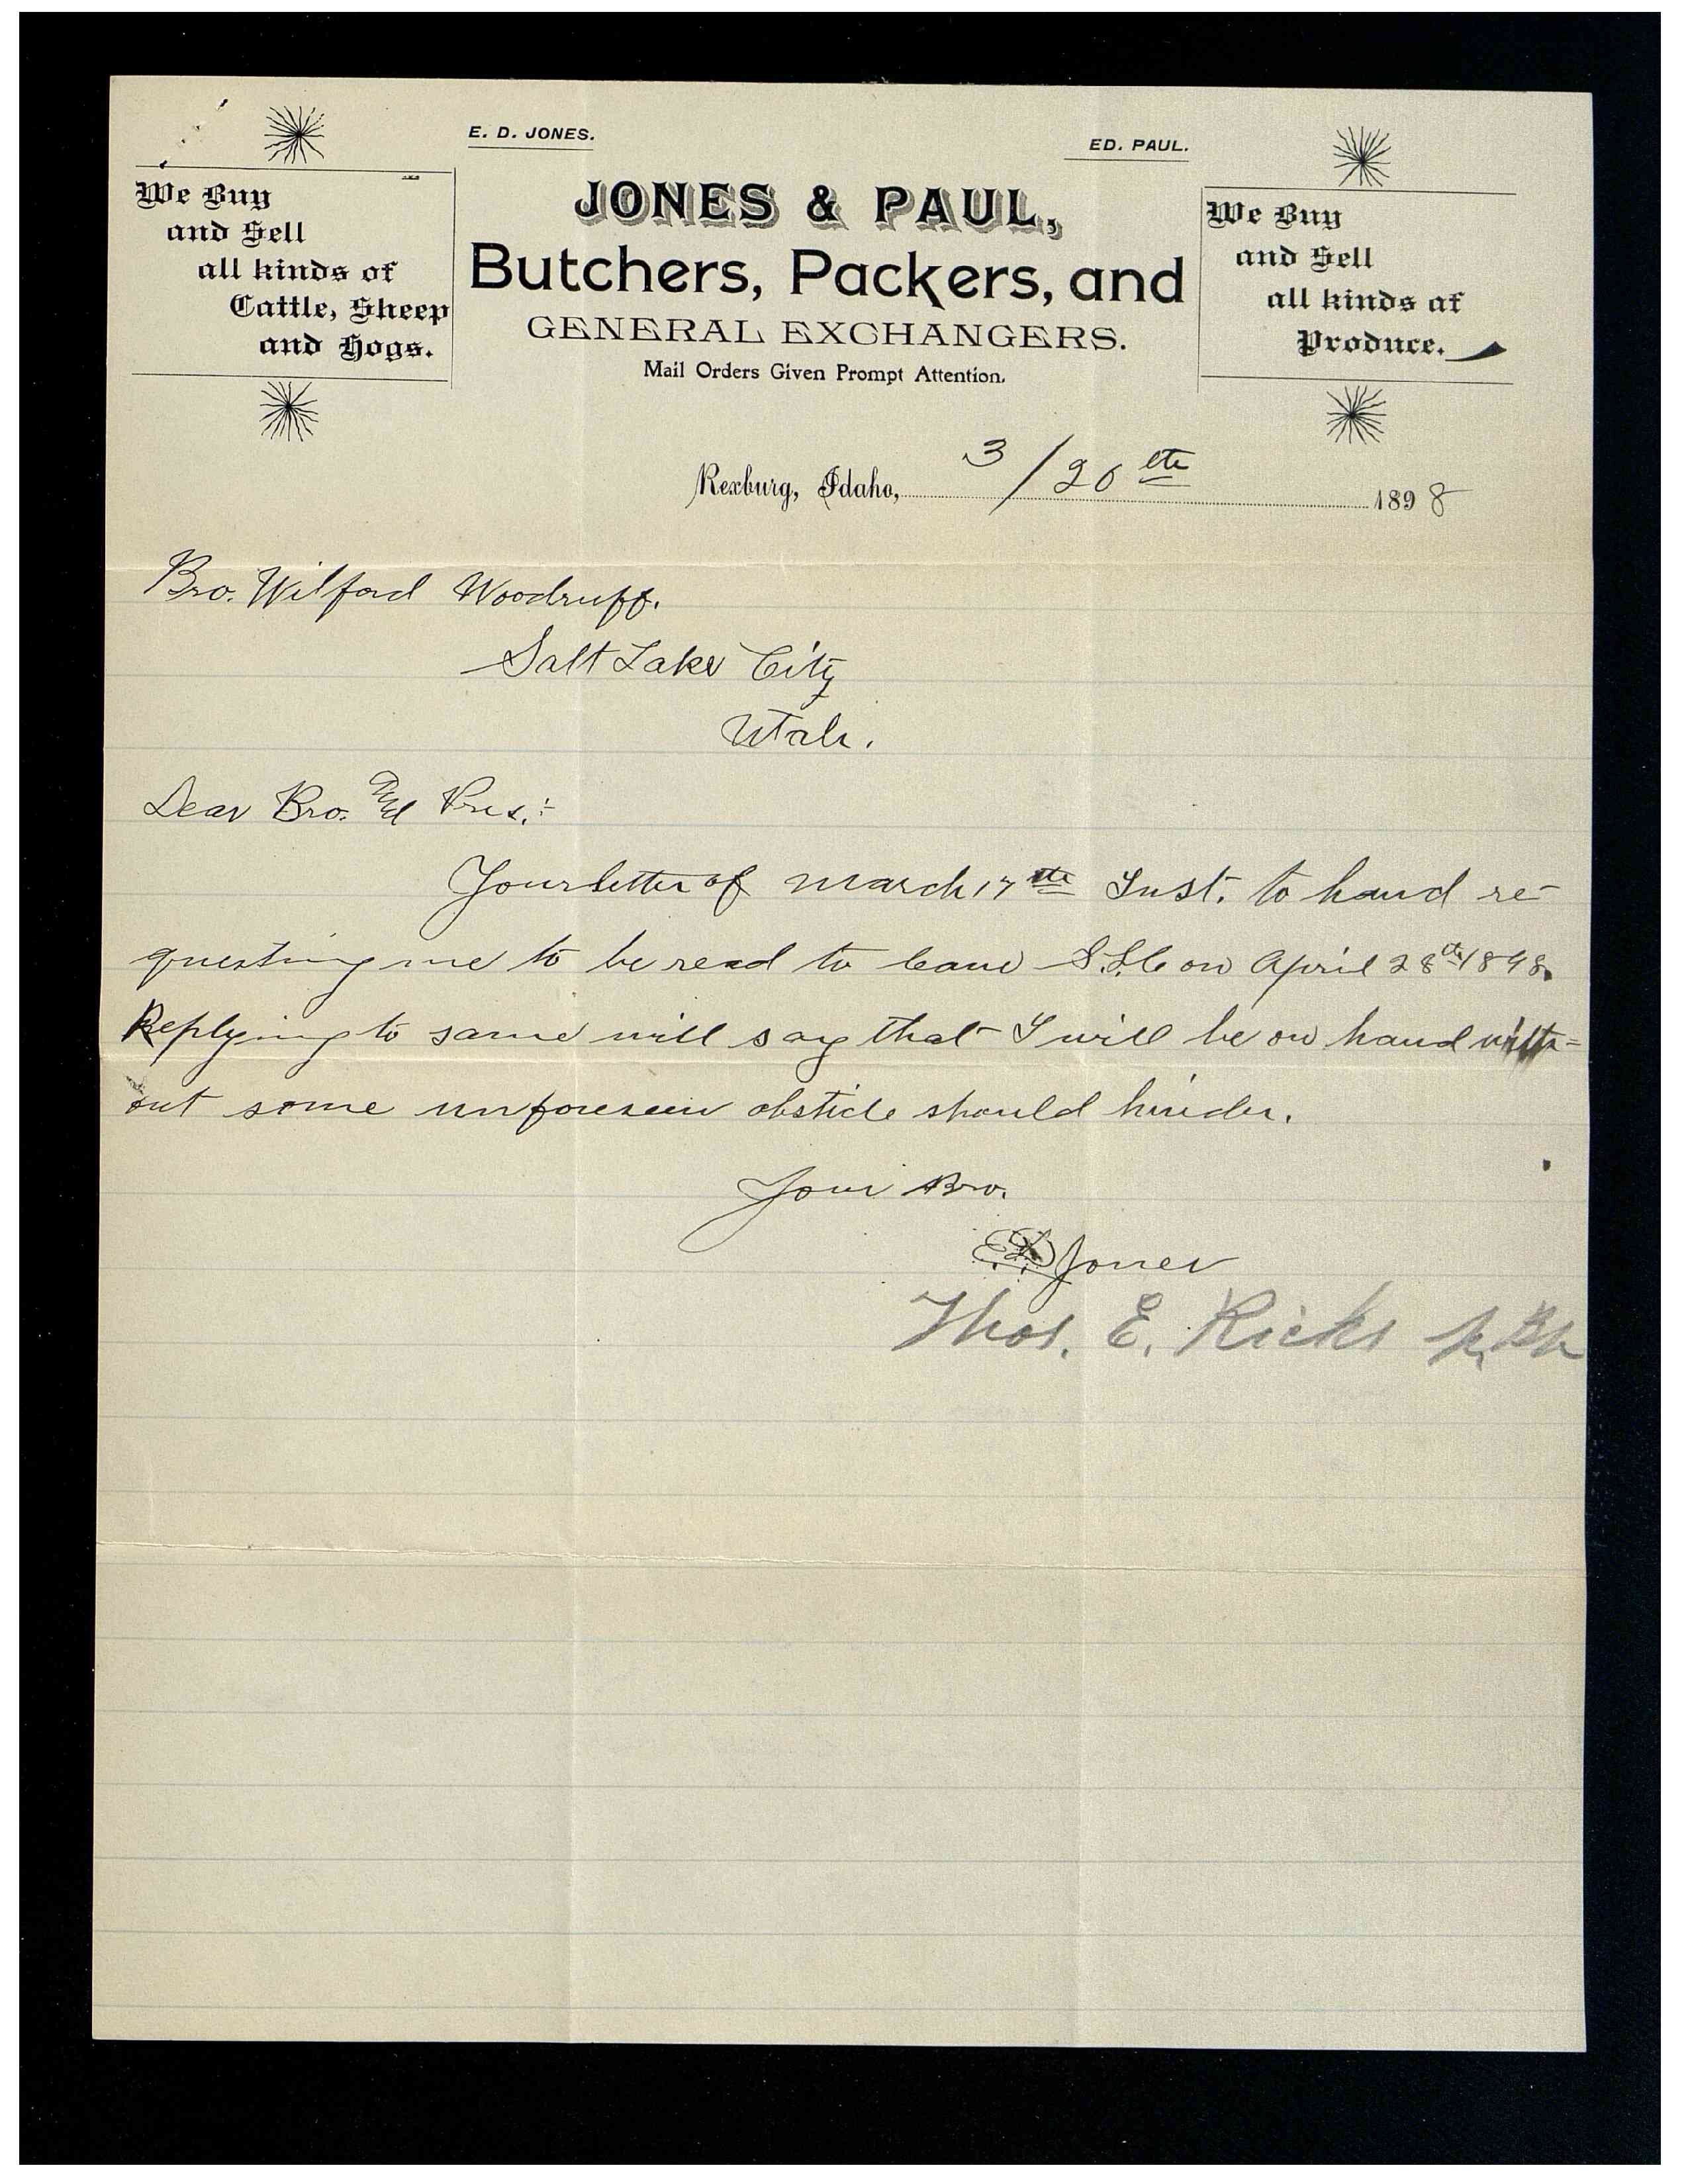 E. D. JONES.
ED. PAUL.
We Buy
and Sell
all kinds of
Cattle, Sheep
and Hogs.
JONES & PAUL,
Butchers, Packers, and
GENERAL EXCHANGERS.
Mail Orders Given Prompt Attention.
We Buy
and Sell
all kinds of
Produce.
Rexburg, Idaho, 3/20th 1898
Bro. Wilford Woodruff.
Salt Lake City
Utah.
Dear Bro. and Pres.:-
Your letter of March 17th Inst. to hand re-
questing me to be read to leave S.L.C on April 28th 1898.
Replying to same will say that I will be on hand with=
out some unforeseen obsticle should hinder.
Your Bro.
E.D. Jones
Thos. E. Ricks